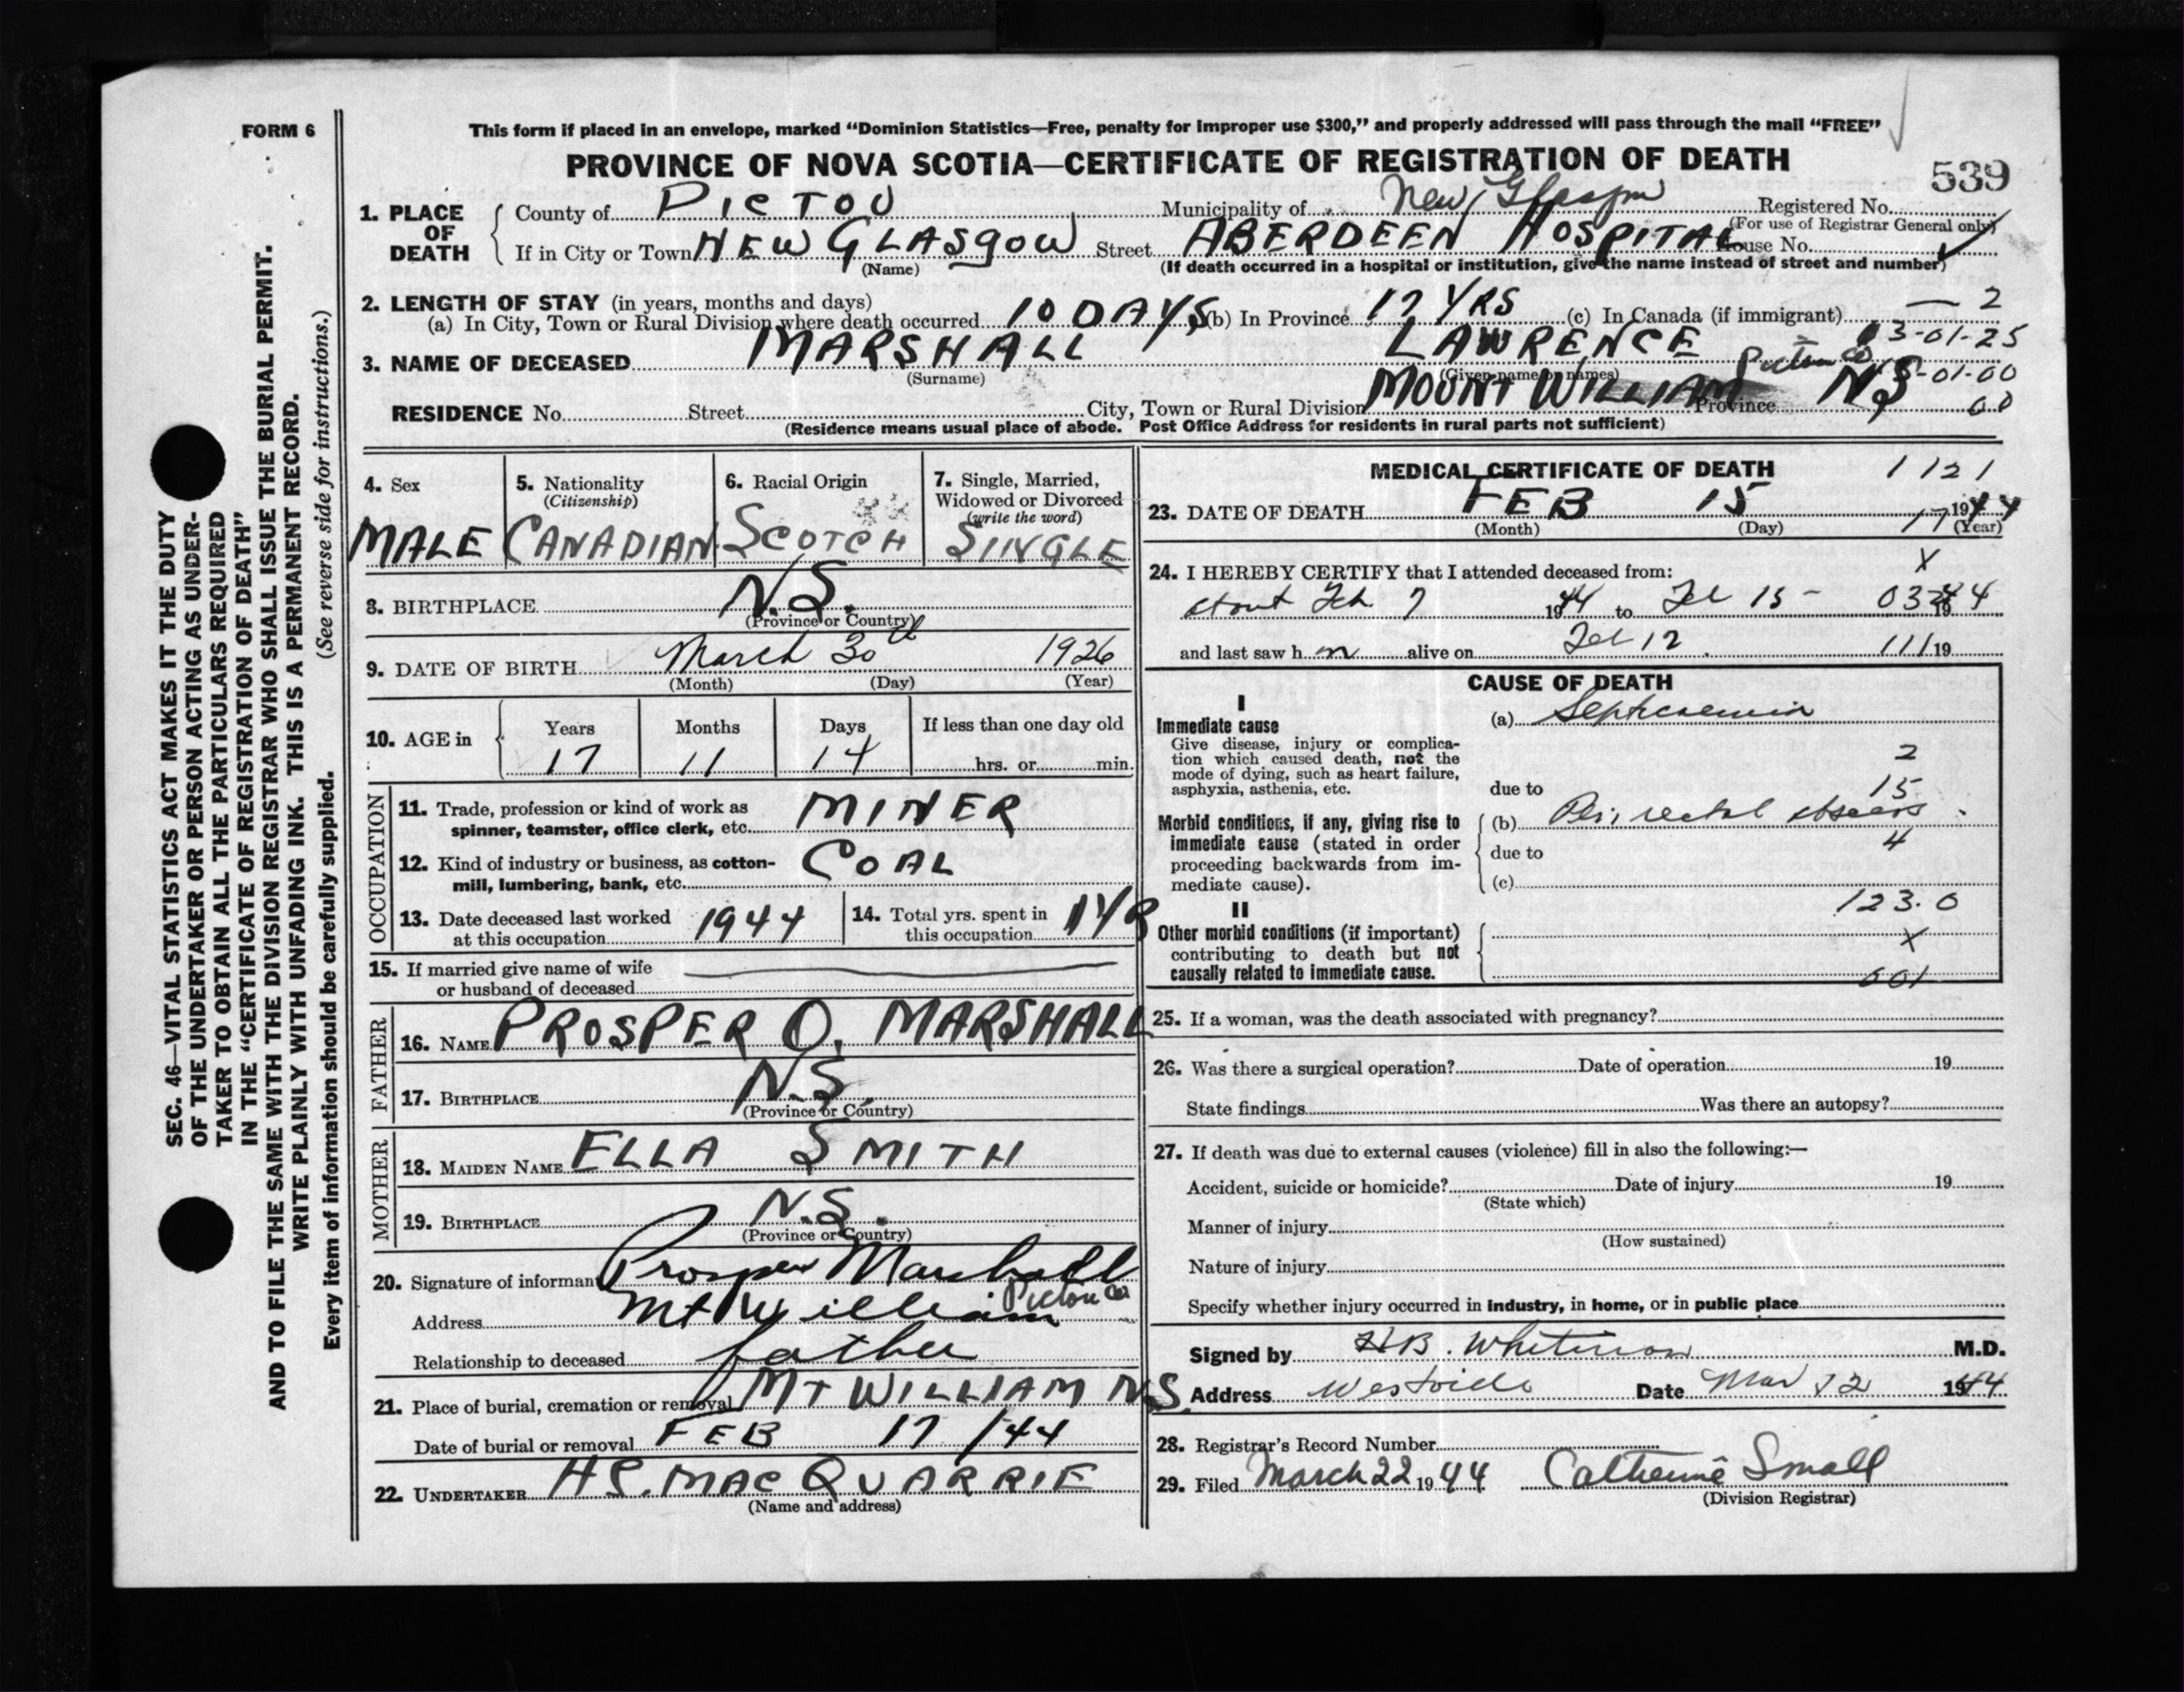 FORM 6
This form if placed in an envelope, marked “Dominion Statistics—Free, penalty for improper use $300,” and properly addressed will pass through the mail “FREE”
PROVINCE OF NOVA SCOTIA—CERTIFICATE OF REGISTRATION OF DEATH
539
1. PLACE OF DEATH
County of PICTOU Municipality of New Glasgow Registered No.
(For use of Registrar General only)
If in City or Town NEW GLASGOW Street ABERDEEN HOSPITAL House No.
(Name) (If death occurred in a hospital or institution, give the name instead of street and number)
2. LENGTH OF STAY (in years, months and days)
(a) In City, Town or Rural Division where death occurred 10 DAYS (b) In Province 17 YRS (c) In Canada (if immigrant) — 2
03-01-25
3. NAME OF DECEASED MARSHALL LAWRENCE
(Surname) (Given name or names)
Pictou Co -01-00
RESIDENCE No. Street City, Town or Rural Division MOUNT WILLIAM Province NS 00
(Residence means usual place of abode. Post Office Address for residents in rural parts not sufficient)
4. Sex
MALE
5. Nationality
(Citizenship)
CANADIAN
6. Racial Origin
SCOTCH
7. Single, Married,
Widowed or Divorced
(write the word)
SINGLE
8. BIRTHPLACE N.S.
(Province or Country)
9. DATE OF BIRTH March 30th 1926
(Month) (Day) (Year)
10. AGE in
Years Months Days If less than one day old
17 11 14 hrs. or min.
OCCUPATION
11. Trade, profession or kind of work as
spinner, teamster, office clerk, etc. MINER
12. Kind of industry or business, as cotton-
mill, lumbering, bank, etc. COAL
13. Date deceased last worked
at this occupation 1944
14. Total yrs. spent in
this occupation 1 YR
15. If married give name of wife
or husband of deceased
FATHER
16. NAME PROSPER O. MARSHALL
17. BIRTHPLACE N.S.
(Province or Country)
MOTHER
18. MAIDEN NAME ELLA SMITH
19. BIRTHPLACE N.S.
(Province or Country)
20. Signature of informant Prosper Marshall
Address Mt William Pictou Co
Relationship to deceased father
21. Place of burial, cremation or removal MT WILLIAM N.S.
Date of burial or removal FEB 17/44
22. UNDERTAKER H.S. MACQUARRIE
(Name and address)
MEDICAL CERTIFICATE OF DEATH 1121
23. DATE OF DEATH FEB 15 1944
(Month) (Day) 17 (Year)
X
24. I HEREBY CERTIFY that I attended deceased from:
about Feb 7 1944 to Feb 15 - 1944
and last saw h m alive on Feb 12 111 19
CAUSE OF DEATH
I
Immediate cause
Give disease, injury or complica-
tion which caused death, not the
mode of dying, such as heart failure,
asphyxia, asthenia, etc.
(a) Septicaemia
2
due to 15
Morbid conditions, if any, giving rise to
immediate cause (stated in order
proceeding backwards from im-
mediate cause).
(b) Peri rectal abscess
due to 4
(c)
123.0
II
Other morbid conditions (if important)
contributing to death but not
causally related to immediate cause.
X
001
25. If a woman, was the death associated with pregnancy?
26. Was there a surgical operation? Date of operation 19
State findings Was there an autopsy?
27. If death was due to external causes (violence) fill in also the following:—
Accident, suicide or homicide? Date of injury 19
(State which)
Manner of injury
(How sustained)
Nature of injury
Specify whether injury occurred in industry, in home, or in public place
Signed by H.B. Whitman M.D.
Address Westville Date Mar 12 1944
28. Registrar's Record Number
29. Filed March 22 1944 Catherine Small
(Division Registrar)
SEC. 46—VITAL STATISTICS ACT MAKES IT THE DUTY
OF THE UNDERTAKER OR PERSON ACTING AS UNDER-
TAKER TO OBTAIN ALL THE PARTICULARS REQUIRED
IN THE “CERTIFICATE OF REGISTRATION OF DEATH”
AND TO FILE THE SAME WITH THE DIVISION REGISTRAR WHO SHALL ISSUE THE BURIAL PERMIT.
WRITE PLAINLY WITH UNFADING INK. THIS IS A PERMANENT RECORD.
Every item of information should be carefully supplied. (See reverse side for instructions.)